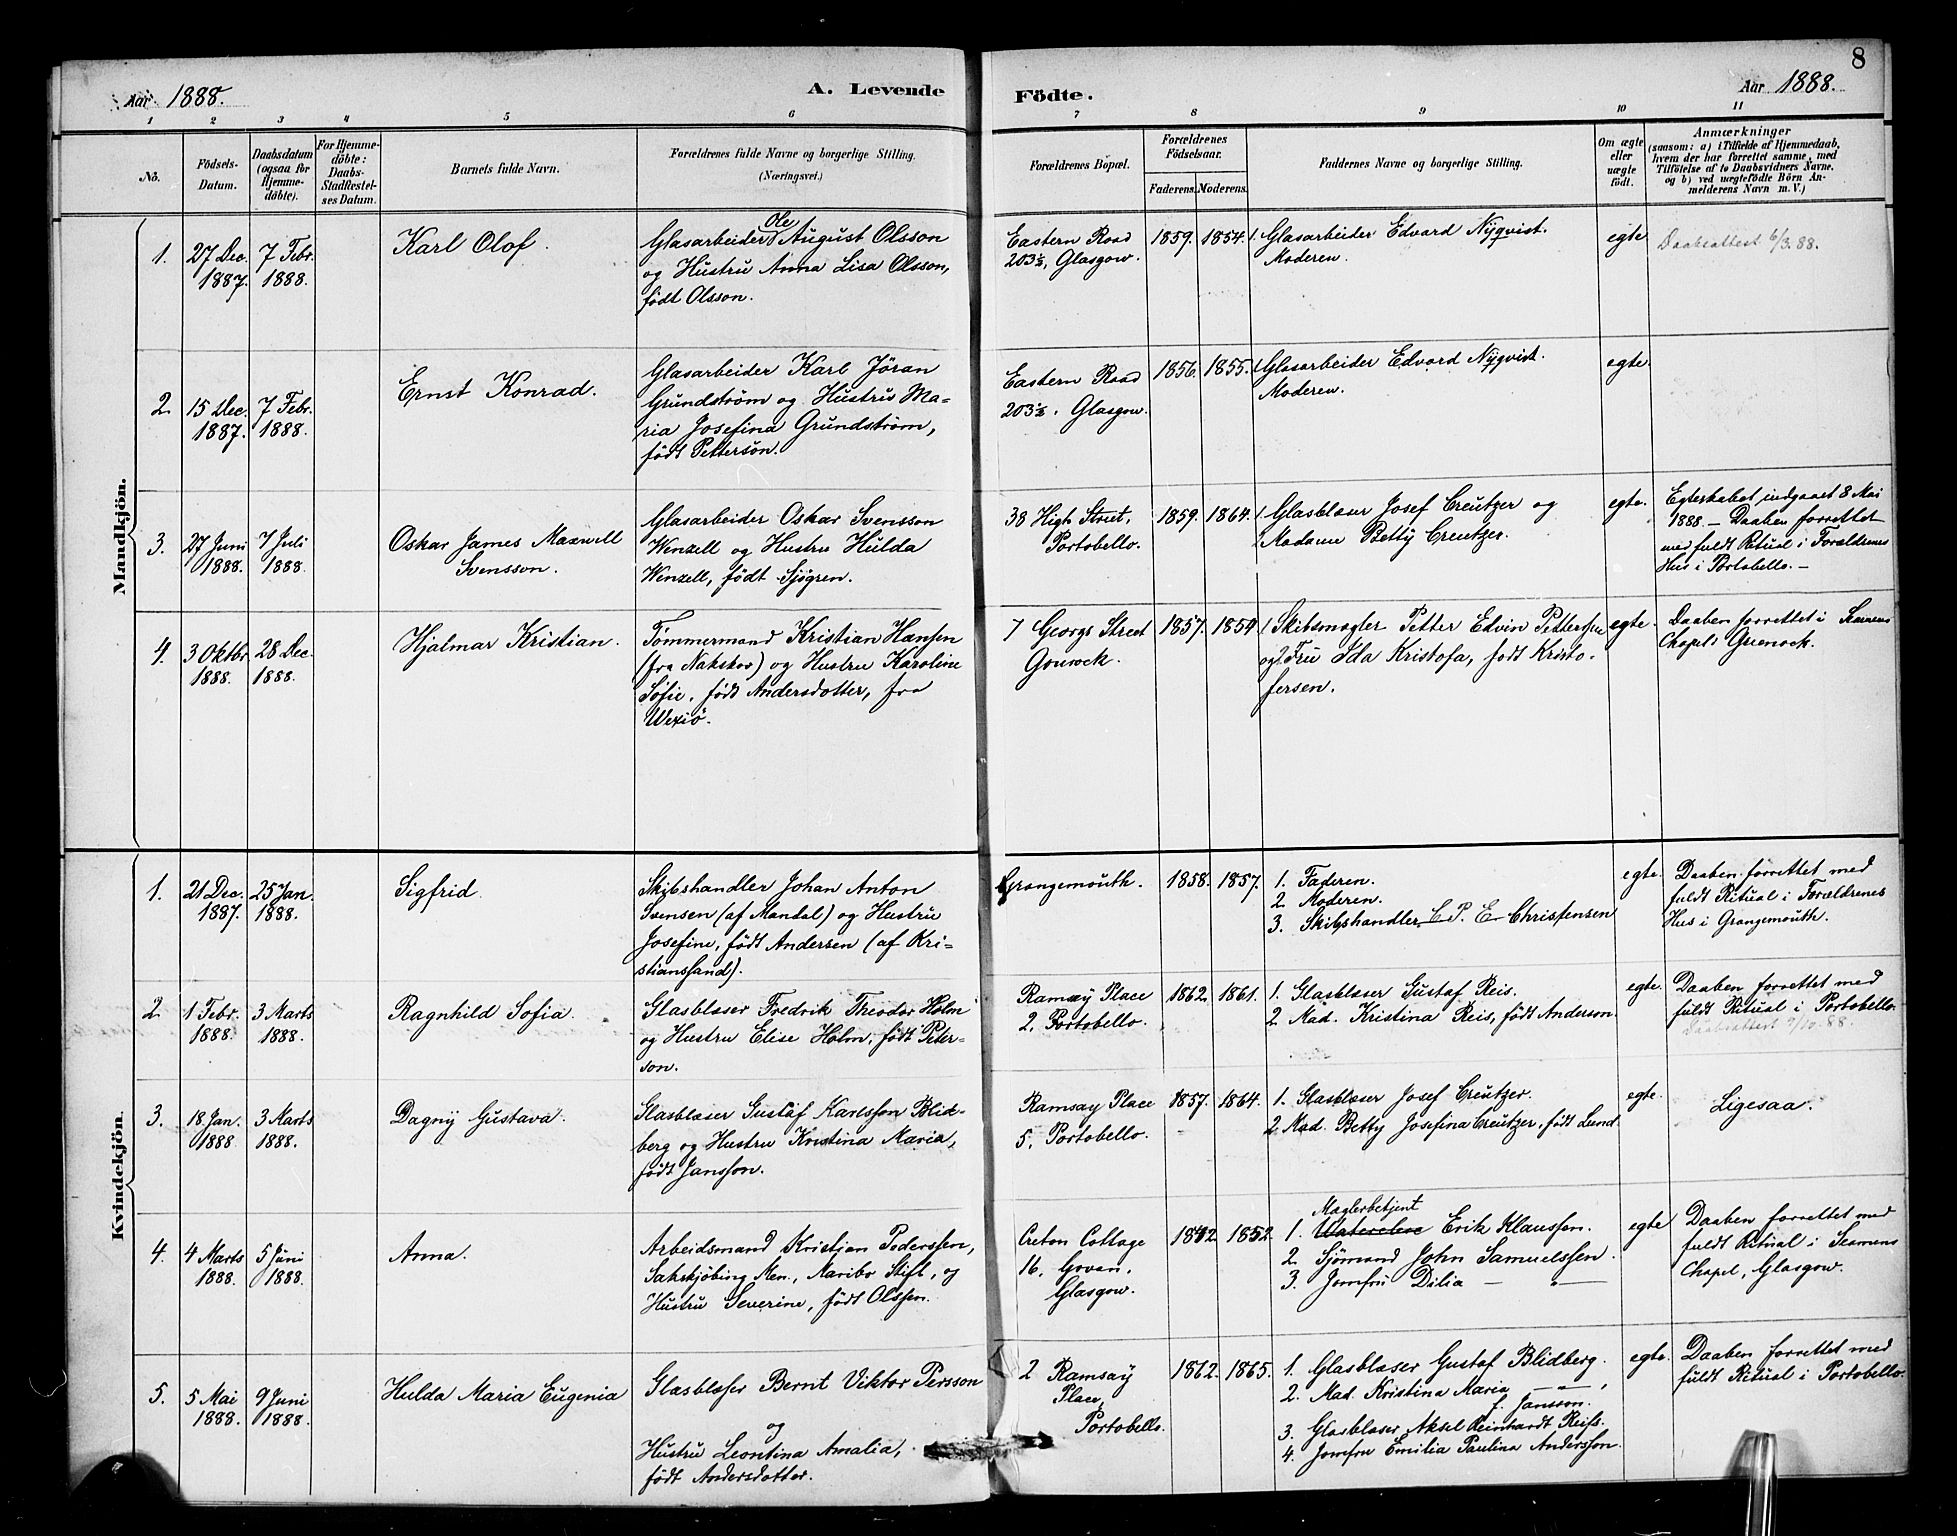 8
Aar 1888. A. Levende Fødte. Aar 1888.
1 2 3 4 5 6 7 8 9 10 11
No.
Födsels-
Datum.
Daabsdatum
(ogsaa for
Hjemme-
döbte).
For Hjemme-
döbte:
Daabs-
Stadfæstel-
ses Datum.
Barnets fulde Navn.
Forældrenes fulde Navne og borgerlige Stilling.
(Næringsvei.)
Forældrenes Böpæl.
Forældrenes
Födselsaar.
Faderens. Moderens.
Faddernes Navne og borgerlige Stilling.
Om ægte
eller
uægte
födt.
Anmærkninger
(saasom: a) i Tilfælde af Hjemmedaab,
hvem der har forrettet samme, med
Tilföielse af to Daabsvidners Navne.
og b) ved uægtefödte Börn An-
melderens Navn m. V.)
Mandkjön.
1.
27 Dec.
1887.
7 Febr.
1888.
Karl Olof.
Ole
Glasarbeider August Olsson
og Hustru Anna Lisa Olsson,
født Olsson.
Eastern Road
203½, Glasgow.
1859. 1854.
1. Glasarbeider Edvard Nyqvist.
Moderen.
egte
Daabsattest 6/3. 88.
2.
15 Dec.
1887.
7 Febr.
1888.
Ernst Konrad.
Glasarbeider Karl Jöran
Grundström og Hustru Ma-
ria Josefina Grundström,
født Petterson.
Eastern Road
203½, Glasgow.
1856. 1855.
Glasarbeider Edvard Nyqvist.
Moderen.
egte.
3.
27 Juni
1888.
7 Juli
1888.
Oskar James Maxwell
Svensson.
Glasarbeider Oskar Svensson
Wenzell og Hustru Hulda
Wenzell, født Sjögren.
38 High Street,
Portobello.
1859. 1864.
Glasblaser Josef Creutzer og
Madame Betty Creutzer.
egte.
Egteskabet indgaaet 8 Mai
1888. — Daaben forrettet
med fuldt Ritual i Forældrenes
Hus i Portobello. —
4.
3 Oktbr
1888.
28 Dec.
1888.
Hjalmar Kristian.
Tømmermand Kristian Hansen
(fra Nakskov) og Hustru Karoline
Sofie, født Andersdotter, fra
Wexiö.
7 Georgs Street
Gourock.
1857. 1854
Skibsmægler Petter Edvin Pettersen
og Fru Ida Kristofa, født Kristo-
fersen.
egte.
Daaben forrettet i Seamens
Chapel i Greenock.
Kvindekjön.
1.
21 Dec.
1887.
25 Jan.
1888.
Sigfrid.
Skibshandler Johan Anton
Svensen (af Mandal) og Hustru
Josefine, født Andersen (af Kri-
stianssand).
Grangemouth.
1858. 1857.
1. Faderen.
2. Moderen.
3. Skibshandler C. P. E. Christensen
egte.
Daaben forrettet med
fuldt Ritual i Forældrenes
Hus i Grangemouth.
2.
1 Febr.
1888.
3 Marts
1888.
Ragnhild Sofia.
Glasblaser Fredrik Theodor Holm
og Hustru Elise Holm, født Peter-
son.
Ramsay Place
2. Portobello.
1862. 1861.
1. Glasblaser Gustaf Reis.
2. Mad. Kristina Reis, født Anderson.
egte.
Daaben forrettet med
fuldt Ritual i Portobello.
Daabsattest 9/10. 88.
3.
18 Jan.
1888.
3 Marts
1888.
Dagny Gustava.
Glasblaser Gustaf Karlsson Blid-
berg og Hustru Kristina Maria,
født Jansson.
Ramsay Place
5. Portobello.
1857. 1864.
1. Glasblaser Josef Creutzer.
2. Mad. Betty Josefina Creutzer, født Lund.
egte.
Ligesaa.
4.
4 Marts
1888.
5 Juni
1888.
Anna.
Arbeidsmand Kristjan Pederssen,
Sakskjöbing Men., Maribo Stift, og
Hustru Severine, født Olssen.
Creton Cottage
16. Govan.
Glasgow.
1842. 1852.
Maglerbetjent
1. Erik Klaussen.
2. Sjömand John Samuelssen.
3. Jomfru Dilia — „ —
egte
Daaben forrettet med
fuldt Ritual i Seamens
Chapel, Glasgow.
5.
5 Mai
1888.
9 Juni
1888.
Hulda Maria Eugenia
Glasblaser Bernt Viktor Persson
og
Hustru Leontina Amalia,
født Andersdotter.
2 Ramsay
Place,
Portobello.
1862. 1865.
1. Glasblaser Gustaf Blidberg.
2. Mad. Kristina Maria — „ —,
f. Jansson.
3. Glasblaser Aksel Reinhardt Reiss.
4. Jomfru Emilia Paulina Andersson.
egte.
Daaben forrettet med
fuldt Ritual i Portobello.